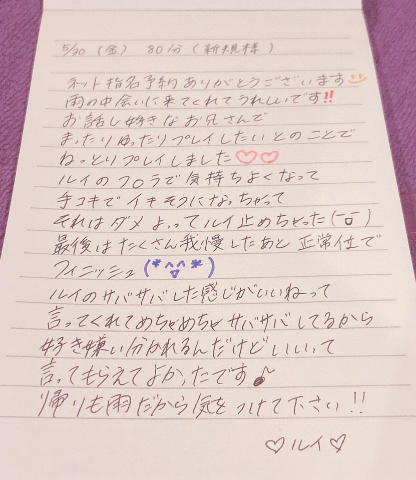 5/30 (金) 80分 (新規様)
ネット指名予約ありがとうございます
雨の中会いに来てくれてうれしいです!!
お話し好きなお兄さんで
まったりゆったりプレイしたいとのことで
ねっとりプレイしました♡♡
ルイのフロラで気持ちよくなって
手コキでイキそうになっちゃって
それはダメよってルイ止めちゃった
最後はたくさん我慢したあと 正常位で
フィニッシュ(*^^*)
ルイのサバサバした感じがいいねって
言ってくれてめちゃめちゃサバサバしてるから
好き嫌い分かれるんだけどいいって
言ってもらえてよかったです♪
帰りも雨だから気をつけて下さい!!
♡ルイ♡